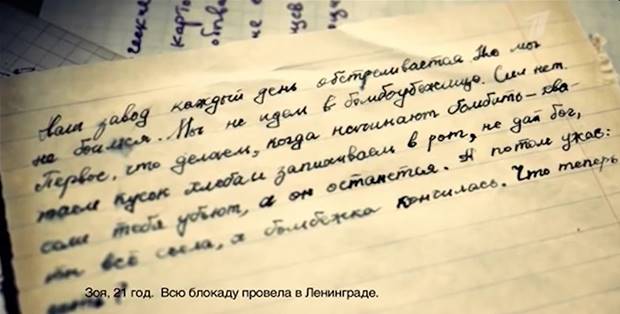 Наш завод каждый день обстреливается. Но мы
не боимся. Мы не идем в бомбоубежище. Сил нет.
Первое, что делаем, когда начинают бомбить – хва-
таем кусок хлеба и запихиваем в рот, не дай бог,
если тебя убьют, а он останется. А потом ужас:
ты всё съела, а бомбежка кончилась. Что теперь
Зоя, 21 год. Всю блокаду провела в Ленинграде.